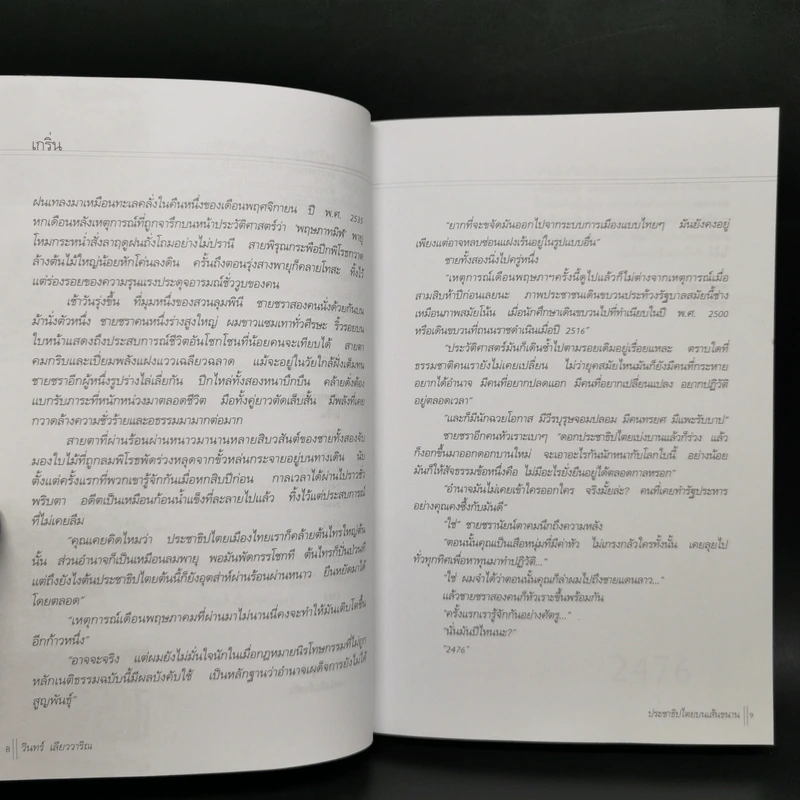 เกริ่น
ฝนเทลงมาเหมือนทะเลคลั่งในคืนหนึ่งของเดือนพฤศจิกายน ปี พ.ศ. 2535
หกเดือนหลังเหตุการณ์ที่ถูกจารึกบนหน้าประวัติศาสตร์ว่า 'พฤษภาทมิฬ' พายุ
โหมกระหน่ำสั่งลาฤดูฝนถั่งโถมอย่างไม่ปรานี สายพิรุณกระพือปีกพิโรธกวาด
ล้างต้นไม้ใหญ่น้อยหักโค่นลงดิน ครั้นถึงตอนรุ่งสางพายุก็คลายโทสะ ทิ้งไว้
แต่ร่องรอยของความรุนแรงประดุจอารมณ์ชั่ววูบของคน
เช้าวันรุ่งขึ้น ที่มุมหนึ่งของสวนลุมพินี ชายชราสองคนนั่งด้วยกันบน
ม้านั่งตัวหนึ่ง ชายชราคนหนึ่งร่างสูงใหญ่ ผมขาวแซมเทาทั่วศีรษะ ริ้วรอยบน
ใบหน้าแสดงถึงประสบการณ์ชีวิตอันโชกโชนที่น้อยคนจะเทียบได้ สายตา
คมกริบและเปี่ยมพลังแฝงแววเฉลียวฉลาด แม้จะอยู่ในวัยใกล้ฝั่งเต็มทน
ชายชราอีกผู้หนึ่งรูปร่างไล่เลี่ยกัน ปีกไหล่ทั้งสองหนาบึกบึน คล้ายดั่งต้อง
แบกรับภาระที่หนักหน่วงมาตลอดชีวิต มือทั้งคู่ยาวตัดเล็บสั้น มีพลังที่เคย
กวาดล้างความชั่วร้ายและอธรรมมามากต่อมาก
สายตาที่ผ่านร้อนผ่านหนาวมานานหลายสิบวสันต์ของชายทั้งสองจับ
มองใบไม้ที่ถูกลมพิโรธพัดร่วงหลุดจากขั้วหล่นกระจายอยู่บนทางเดิน นับ
ตั้งแต่ครั้งแรกที่พวกเขารู้จักกันเมื่อหกสิบปีก่อน กาลเวลาได้ผ่านไปราวชั่ว
พริบตา อดีตเป็นเหมือนก้อนน้ำแข็งที่ละลายไปแล้ว ทิ้งไว้แต่ประสบการณ์
ที่ไม่เคยลืม
"คุณเคยคิดไหมว่า ประชาธิปไตยเมืองไทยเราก็คล้ายต้นไทรใหญ่ต้น
นั้น ส่วนอำนาจก็เป็นเหมือนลมพายุ พอมันพัดกรรโชกที ต้นไทรก็ปั่นป่วนที
แต่ถึงยังไงต้นประชาธิปไตยต้นนี้ก็ยังอุตส่าห์ผ่านร้อนผ่านหนาว ยืนหยัดมาได้
โดยตลอด"
"เหตุการณ์เดือนพฤษภาคมที่ผ่านมาไม่นานนี้คงจะทำให้มันเติบโตขึ้น
อีกก้าวหนึ่ง"
"อาจจะจริง แต่ผมยังไม่มั่นใจนักในเมื่อกฎหมายนิรโทษกรรมที่ไม่ถูก
หลักเนติธรรมฉบับนี้มีผลบังคับใช้ เป็นหลักฐานว่าอำนาจเผด็จการยังไม่ได้
สูญพันธุ์"
8 วินทร์ เลียววาริณ
"ยากที่จะขจัดมันออกไปจากระบบการเมืองแบบไทยๆ มันยังคงอยู่
เพียงแต่อาจหลบซ่อนแฝงเร้นอยู่ในรูปแบบอื่น"
ชายทั้งสองนิ่งไปครู่หนึ่ง
"เหตุการณ์เดือนพฤษภาฯครั้งนี้ดูไปแล้วก็ไม่ต่างจากเหตุการณ์เมื่อ
สามสิบห้าปีก่อนเลยนะ ภาพประชาชนเดินขบวนประท้วงรัฐบาลสมัยนี้ช่าง
เหมือนภาพสมัยโน้น เมื่อนักศึกษาเดินขบวนไปที่ทำเนียบในปี พ.ศ. 2500
หรือเดินขบวนที่ถนนราชดำเนินเมื่อปี 2516"
"ประวัติศาสตร์มันก็เดินซ้ำไปตามรอยเดิมอยู่เรื่อยแหละ ตราบใดที่
ธรรมชาติคนเรายังไม่เคยเปลี่ยน ไม่ว่ายุคสมัยไหนมันก็ยังมีคนที่กระหาย
อยากได้อำนาจ มีคนที่อยากปลดแอก มีคนที่อยากเปลี่ยนแปลง อยากปฏิวัติ
อยู่ตลอดเวลา"
"และก็มีนักฉวยโอกาส มีวีรบุรุษจอมปลอม มีคนทรยศ มีแพะรับบาป"
ชายชราอีกคนหัวเราะเบาๆ "ดอกประชาธิปไตยเบ่งบานแล้วก็ร่วง แล้ว
ก็งอกขึ้นมาออกดอกบานใหม่ จะเอาอะไรกันนักหนากับโลกใบนี้ อย่างน้อย
มันก็ให้สัจธรรมข้อหนึ่งคือ ไม่มีอะไรยั่งยืนอยู่ได้ตลอดกาลหรอก"
"อำนาจมันไม่เคยเข้าใครออกใคร จริงมั้ยล่ะ? คนที่เคยทำรัฐประหาร
อย่างคุณคงซึ้งกับมันดี"
"ใช่" ชายชรานัยน์ตาคมนึกถึงความหลัง
"ตอนนั้นคุณเป็นเสือหนุ่มที่มีค่าหัว ไม่เกรงกลัวใครทั้งนั้น เคยลุยไป
ทั่วทุกทิศเพื่อหาทุนมาทำปฏิวัติ..."
"ใช่ ผมจำได้ว่าตอนนั้นคุณก็ล่าผมไปถึงชายแดนลาว..."
แล้วชายชราสองคนก็หัวเราะขึ้นพร้อมกัน
"ครั้งแรกเรารู้จักกันอย่างศัตรู..."
"นั่นมันปีไหนนะ?"
"2476"
ประชาธิปไตยบนเส้นขนาน 9